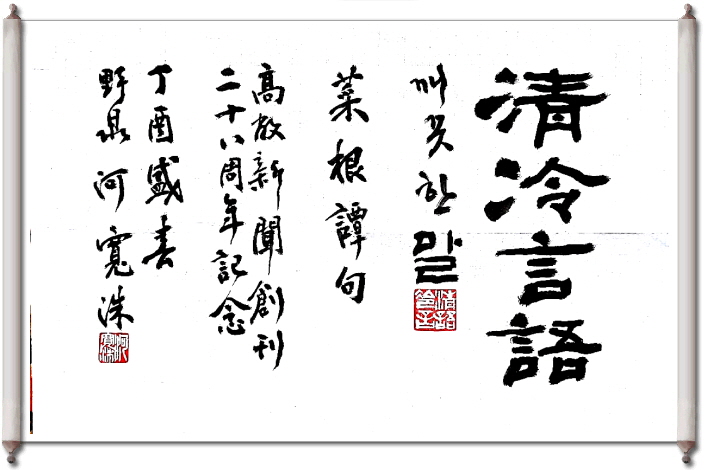 清冷言語
깨끗한 말
菜根譚句
高敞新聞創刊
二十八周年記念
丁酉盛春
野泉 河寬洙